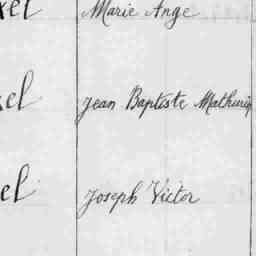 el Marie Ange
el Jean Baptiste Mathurin
el Joseph Victor